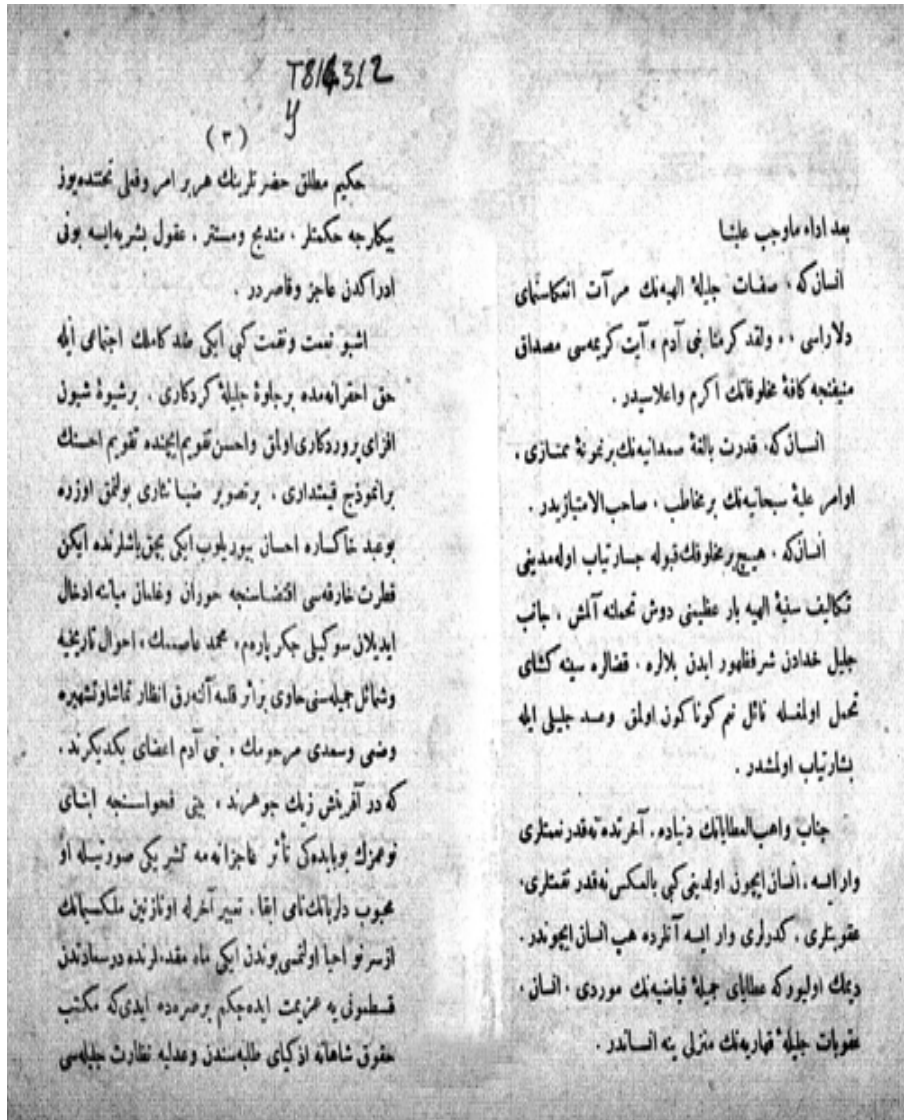 بعد اداء ماوجب علینا
انسان که ، صفات جلیلهٔ الهیه‌نك مرآت انعکاسنمای
دلاراسی ، « ولقد کرمنا بنی آدم » آیت کریمه‌سی مصداق
منیفنجه کافهٔ مخلوقاتك اکرم واعلاسیدر .
انسان که ، قدرت بالغهٔ صمدانیه‌نك برنمونهٔ ممتازی ،
اوامر علیهٔ سبحانیه‌نك برمخاطب ، صاحب الامتیازیدر .
انسان که ، هیچ برمخلوقك قبوله جسارتیاب اوله‌مدیغی
تکالیف سنیهٔ الهیه بار عظیمنی دوش تحملنه آلمش ، جانب
جلیل خدادن شرفظهور ایدن بلالره ، قضالره سینه کشای
تحمل اولمغله نائل نعم کوناکون اولمق وعد جلیلی ایله
بشارتیاب اولمشدر .
جناب واهب العطایانك دنیاده ، آخرتده نه‌قدر نعمتلری
وار ایسه ، انسان ایچون اولدیغی کبی بالعکس نه‌قدر نقمتلری ،
عقوبتلری ، کدرلری وار ایسه آنلرده هپ انسان ایچوندر .
دیمك اولیورکه عطایای جمیلهٔ فیاضیه‌نك موردی ، انسان ،
عقوبات جلیلهٔ قهاریه‌نك منزلی ینه انساندر .
T814312
y
( ٣ )
حکیم مطلق حضرتلرینك هر بر امر وفعلی تحتنده یوز
بیکلرجه حکمتلر ، مندمج ومستتر ، عقول بشریه ایسه بونی
ادراکدن عاجز وقاصردر .
اشبو نعمت ونقمت کبی ایکی ضد کاملك اجتماعی ایله
حق احقرانه‌مده برجلوهٔ جلیلهٔ کردکاری ، برشیوهٔ شیون
افزای پروردکاری اولمق واحسن تقویم ایچنده تقویم احسنك
برانموذج قیمتداری ، برتصویر ضیا نثاری بولنمق اوزره
بوعبد خاکساره احسان بیوریلوب ایکی بچق یاشلرنده ایکن
فطرت خارقه‌سی اقتضاسنجه حوران وغلمان میاننه ادخال
ایدیلان سوکیلی جکرپاره‌م ، محمد عاصمك ، احوال تاریخیه
وشمائل جمیله‌سنی حاوی براثر قلمه آله‌رق انظار تماشاوتشهیره
وضعی وسعدی مرحومك ، بنی آدم اعضای یکدیکرند ،
که در آفرینش زیك جوهرند ، بیتی فحواسنجه ابنای
نوعمزك بوبابده‌کی تأثر عاجزانه‌مه تشریکی صورتیله او
محبوب دلربانك نامی ابقا ، تعبیر آخرله او نازنین ملکسیمانك
ازسرنو احیا اولنمسی بوندن ایکی ماه مقدملرنده درسعادتدن
قسطمونی یه عزیمت ایده‌جکم برصره‌ده ایدی‌که مکتب
حقوق شاهانه اذکیای طلبه‌سندن وعدلیه نظارت جلیله‌سی